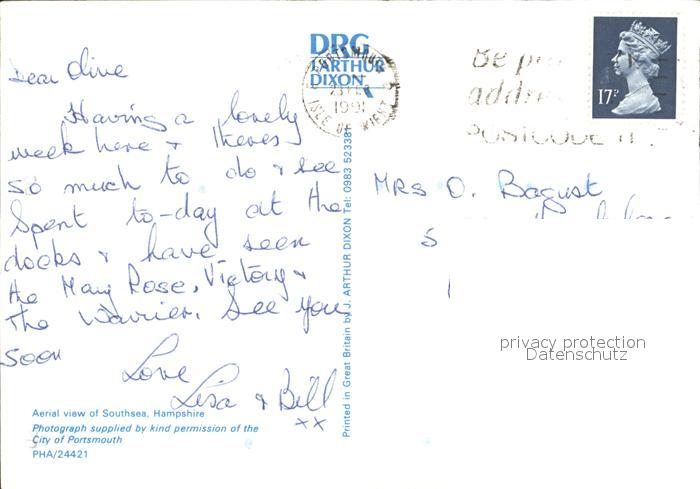 Dear Olive
Having a lovely
week here & theres
so much to do & see
Spent to-day at the
docks & have seen
the Mary Rose, Victory &
The Warrier. See you
soon
Love
Lisa & Bill
xx
Aerial view of Southsea, Hampshire
Photograph supplied by kind permission of the
City of Portsmouth
PHA/24421
DRG
J.ARTHUR
DIXON
Printed in Great Britain by J. ARTHUR DIXON Tel: 0983 523381
PORTSMOUTH
1991
ISLE OF WIGHT
Be
addre
POSTCODE IT
17P
MRS O. Bagust
S
privacy protection
Datenschutz